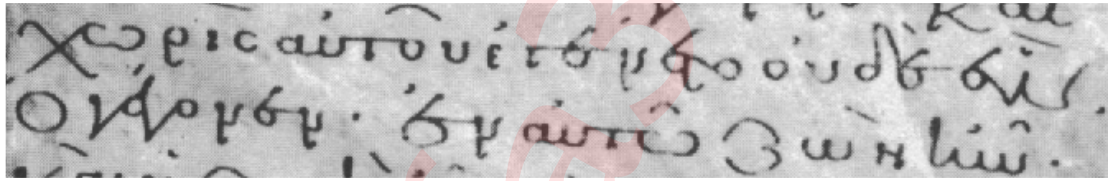 χωρὶς αὐτοῦ ἐγένετο οὐδὲ ἕν.
ὃ γέγονεν· ἐν αὐτῶ ζωὴ ἦν·